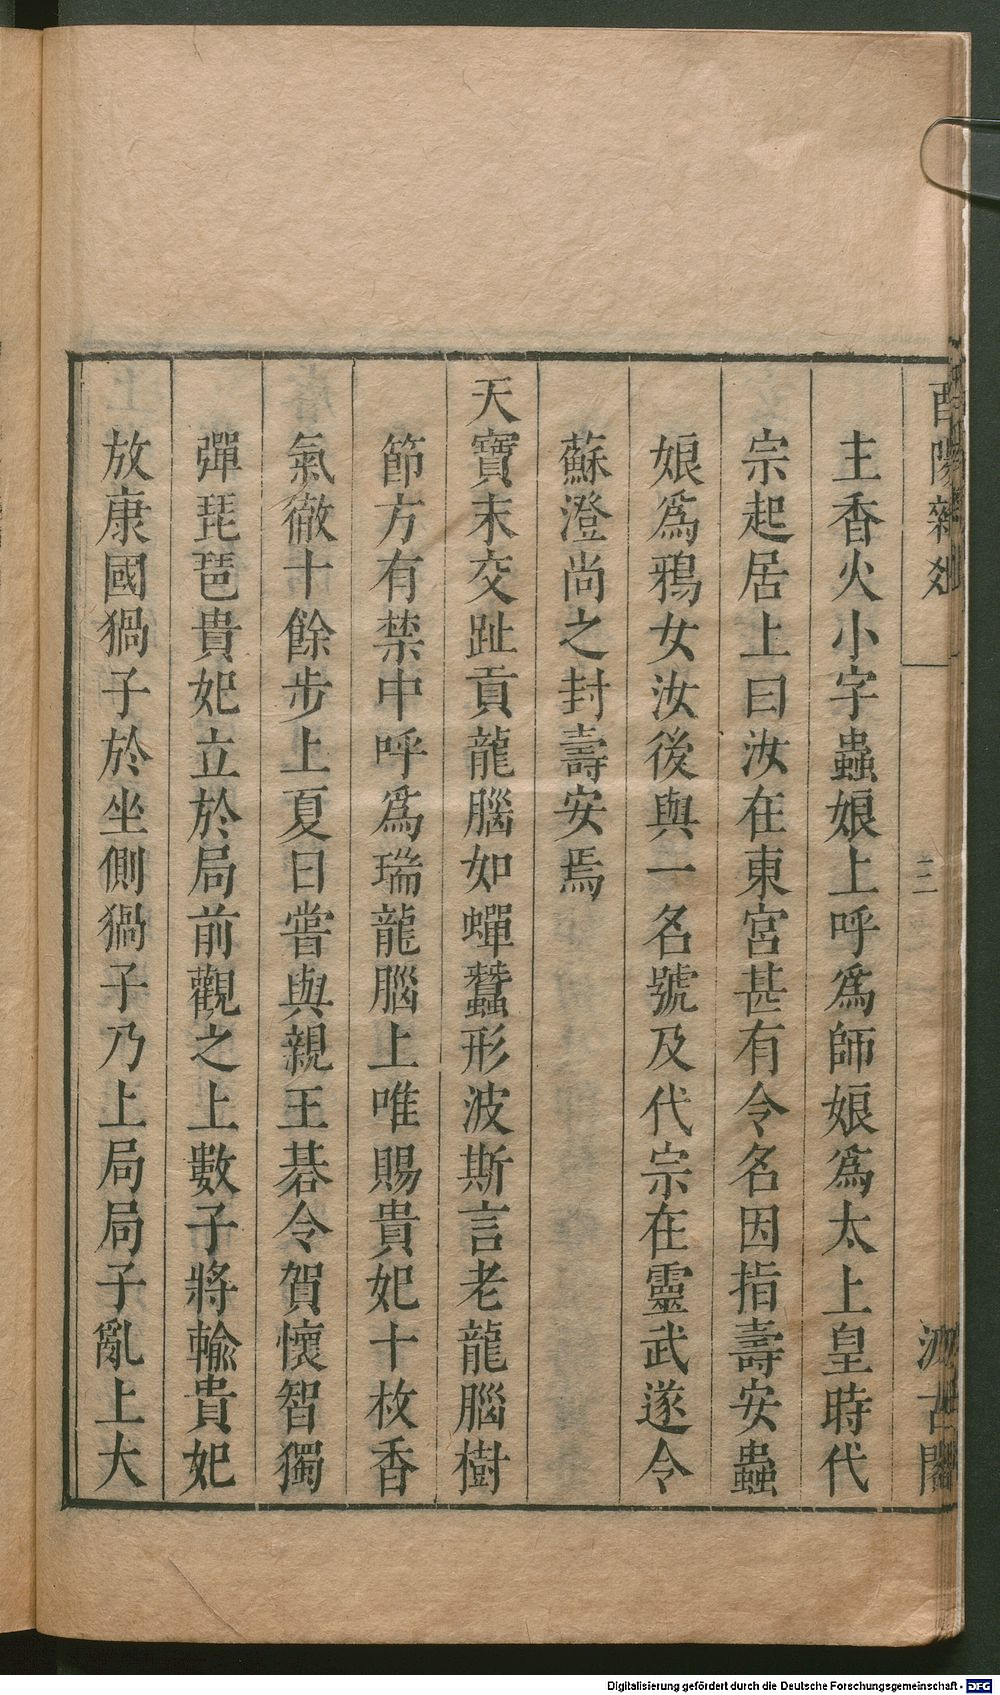 酉陽雜俎 一 三 汲古閣
主香火小字蟲娘上呼爲師娘爲太上皇時代
宗起居上曰汝在東宮甚有令名因指壽安蟲
娘爲鴉女汝後與一名號及代宗在靈武遂令
蘇澄尚之封壽安焉
天寶末交趾貢龍腦如蟬蠶形波斯言老龍腦樹
節方有禁中呼爲瑞龍腦上唯賜貴妃十枚香
氣徹十餘步上夏日嘗與親王棊令賀懷智獨
彈琵琶貴妃立於局前觀之上數子將輸貴妃
放康國猧子於坐側猧子乃上局局子亂上大
Digitalisierung gefördert durch die Deutsche Forschungsgemeinschaft - DFG